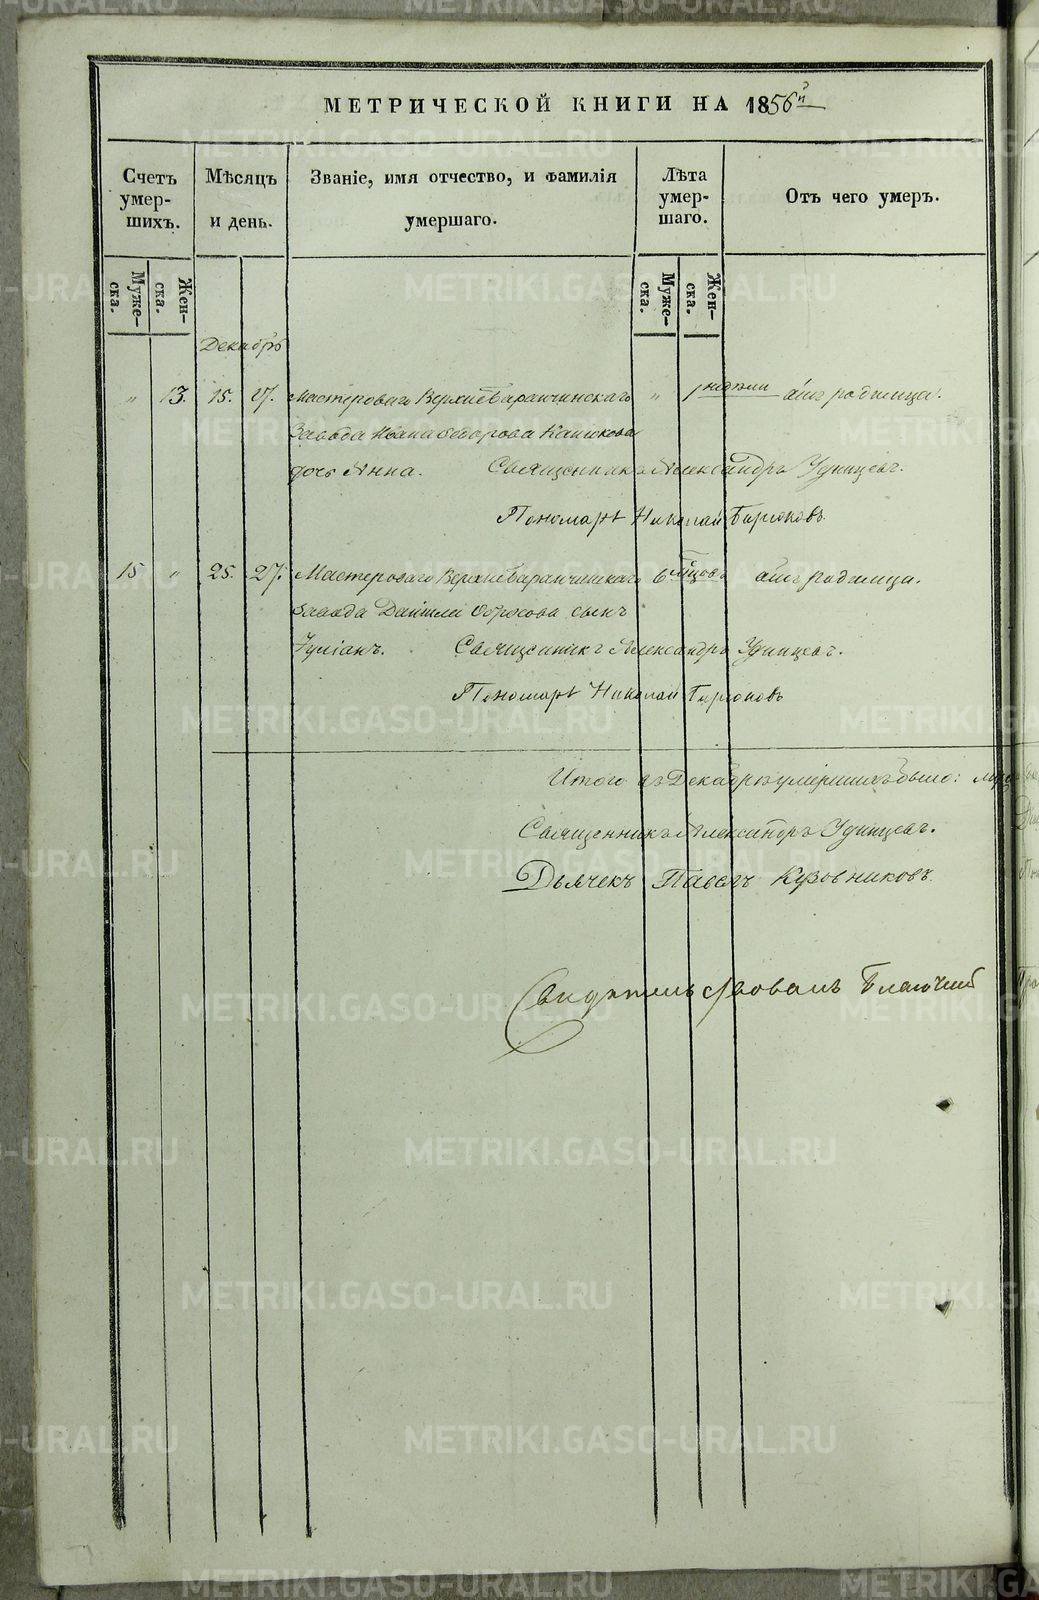 МЕТРИЧЕСКОЙ КНИГИ НА 1856й
Счетъ умер-шихъ.
Мѣсяцъ и день.
Званіе, имя отчество, и фамилія умершаго.
Лѣта умер-шаго.
Отъ чего умеръ.
Муже-ска.
Жен-ска.
Муже-ска.
Жен-ска.
Декабрь
" 13. 15. 17. Мастероваго Верхнебаранчинскаго " 1 недѣли отъ родимца.
Завода Ивана Ѳедорова Канюкова
дочь Анна. Священникъ Александръ Удинцевъ.
Пономарь Николай Бирюковъ.
15 " 25. 27. Мастероваго Верхнебаранчинскаго 6 мѣсцовъ отъ родимца.
завода Даніила сынъ
Іуліанъ. Священникъ Александръ Удинцевъ.
Пономарь Николай Бирюковъ
Итого въ Декабрѣ умершихъ было:
Священникъ Александръ Удинцевъ.
Дьячекъ Павелъ Кузовниковъ.
Свидѣтельствовалъ Благочин
METRIKI.GASO-URAL.RU